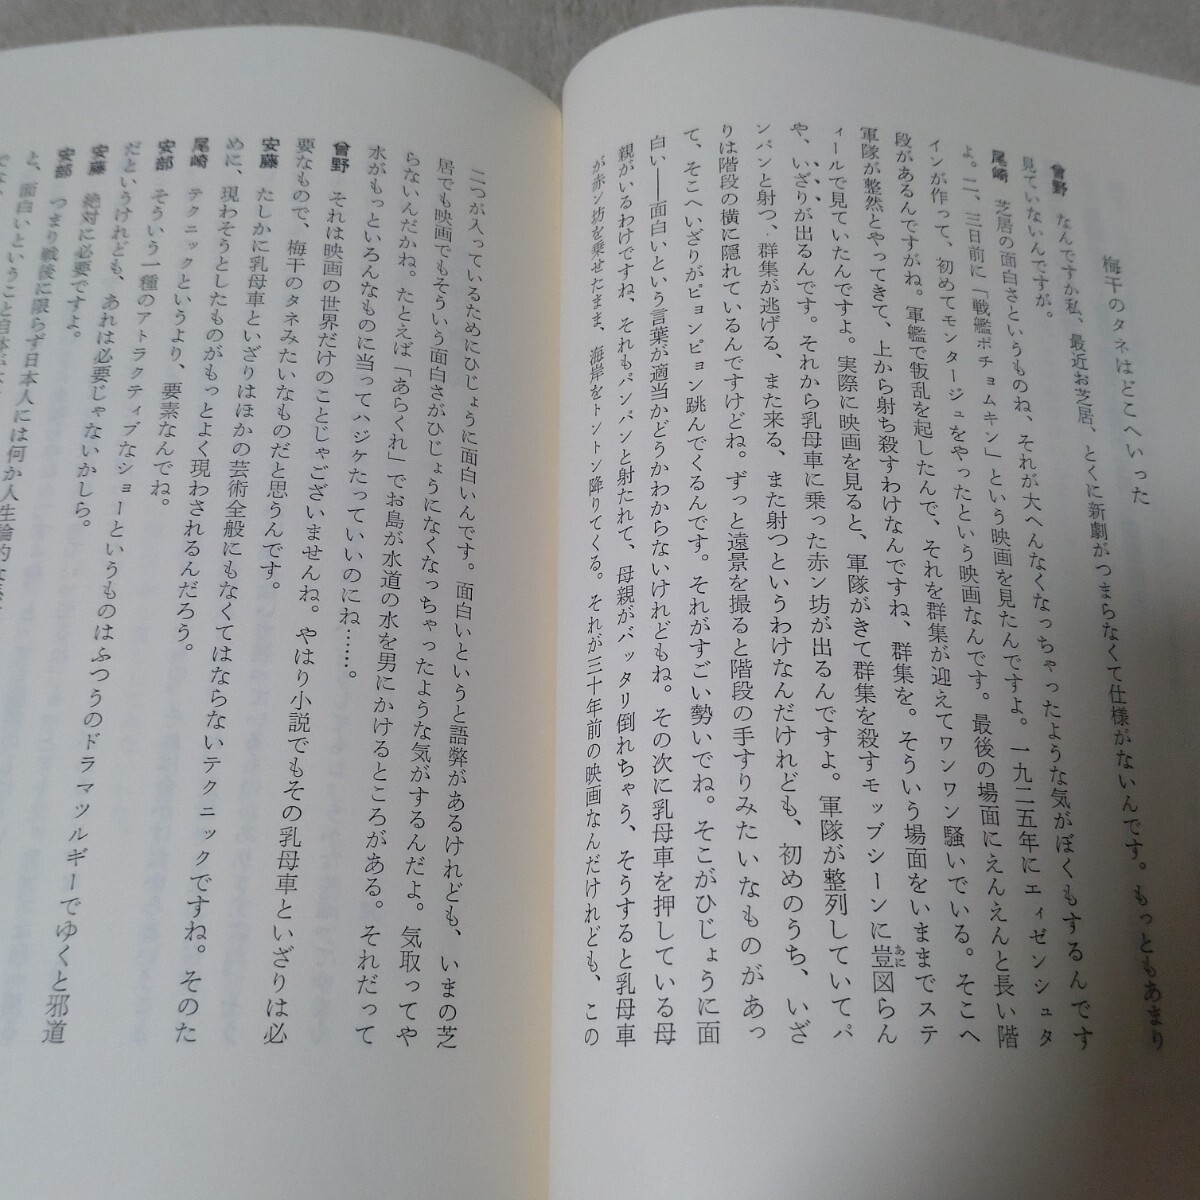 梅干のタネはどこへいった
曾野　なんですか私、最近お芝居、とくに新劇がつまらなくて仕様がないんです。もっともあまり
見ていないんですが。
尾崎　芝居の面白さというものね、それが大へんなくなっちゃったような気がぼくもするんです
よ。二、三日前に「戦艦ポチョムキン」という映画を見たんですよ。一九二五年にエィゼンシュタ
インが作って、初めてモンタージュをやったという映画なんです。最後の場面にえんえんと長い階
段があるんですがね。軍艦で叛乱を起したんで、それを群集が迎えてワンワン騒いでいる。そこへ
軍隊が整然とやってきて、上から射ち殺すわけなんですね、群集を。そういう場面をいままでステ
ィールで見ていたんですよ。実際に映画を見ると、軍隊がきて群集を殺すモッブシーンに豈図らん
や、いざりが出るんです。それから乳母車に乗った赤ン坊が出るんですよ。軍隊が整列していてパ
ンパンと射つ、群集が逃げる、また来る、また射つというわけなんだけれども、初めのうち、いざ
りは階段の横に隠れているんですけどね。ずっと遠景を撮ると階段の手すりみたいなものがあっ
て、そこへいざりがピョンピョン跳んでくるんです。それがすごい勢いでね。そこがひじょうに面
白い――面白いという言葉が適当かどうかわからないけれどもね。その次に乳母車を押している母
親がいるわけですね、それもパンパンと射たれて、母親がバッタリ倒れちゃう、そうすると乳母車
が赤ン坊を乗せたまま、海岸をトントン降りてくる。それが三十年前の映画なんだけれども、この
二つが入っているためにひじょうに面白いんです。面白いというと語弊があるけれども、いまの芝
居でも映画でもそういう面白さがひじょうになくなっちゃったような気がするんだよ。気取ってや
らないんだかね。たとえば「あらくれ」でお島が水道の水を男にかけるところがある。それだって
水がもっといろんなものに当ってハジケたっていいのにね……。
曾野　それは映画の世界だけのことじゃございませんね。やはり小説でもその乳母車といざりは必
要なもので、梅干のタネみたいなものだと思うんです。
安藤　たしかに乳母車といざりはほかの芸術全般にもなくてはならないテクニックですね。そのた
めに、現わそうとしたものがもっとよく現わされるんだろう。
尾崎　テクニックというより、要素なんでね。
安部　そういう一種のアトラクティブなショーというものはふつうのドラマツルギーでゆくと邪道
だというけれども、あれは必要じゃないかしら。
安藤　絶対に必要ですよ。
安部　つまり戦後に限らず日本人には何か人生論的な
と、面白いということ自体が